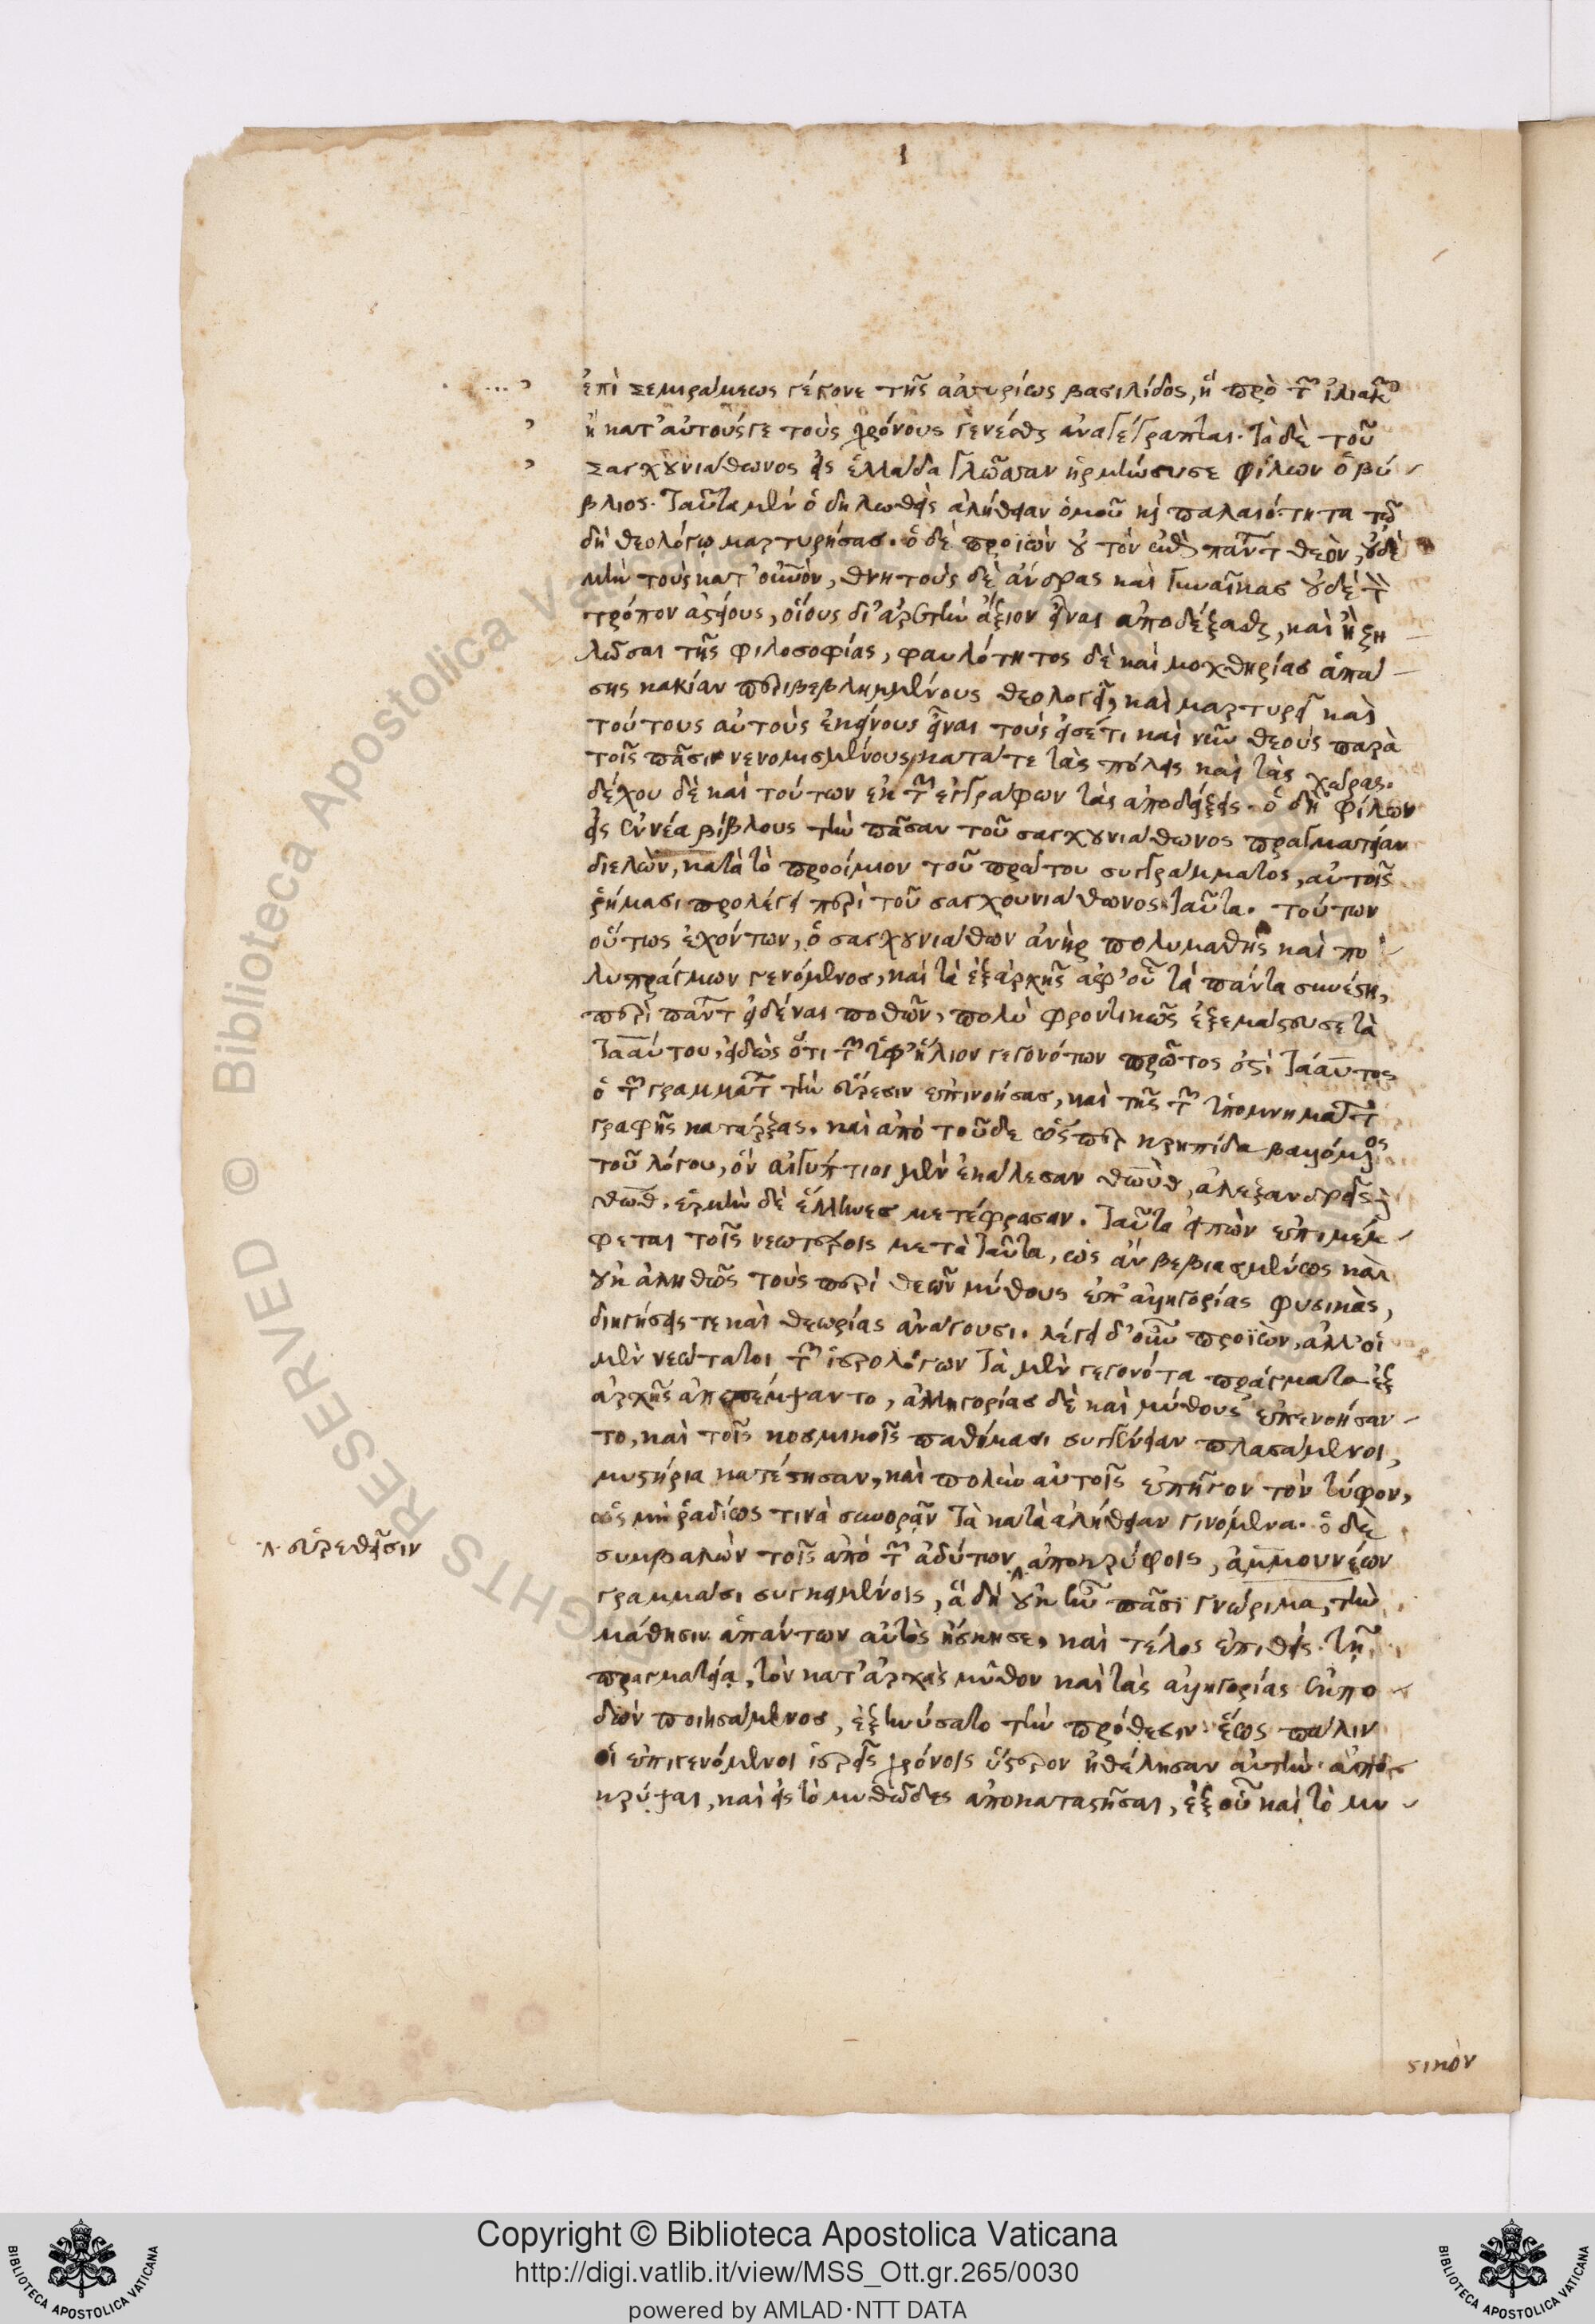 ἐπὶ σεμιράμεως γέγονε τῆς ἀσσυρίων βασιλίδος, ἢ πρὸ τῶν ἰλιακῶν
ἢ κατ' αὐτούς γε τοὺς χρόνους γενέσθαι ἀναγέγραπται. τὰ δὲ τοῦ
σαγχουνιάθωνος εἰς ἑλλάδα γλῶσσαν ἡρμήνευσε φίλων ὁ βύ-
βλιος. ταῦτα μὲν ὁ δηλωθεὶς ἀλήθειαν ὁμοῦ καὶ παλαιότητα τῷ
δὴ θεολόγῳ μαρτυρήσας. ὁ δὲ προϊὼν οὐ τὸν ἐπὶ πάντων θεὸν, οὐδὲ
μὴν τοὺς κατ' οὐρανὸν, θνητοὺς δὲ ἄνδρας καὶ γυναῖκας οὐδὲ τὸν
τρόπον ἀστείους, οἵους δι' ἀρετὴν ἄξιον εἶναι ἀποδέξασθαι, καὶ ἢ ζη
λῶσαι τῆς φιλοσοφίας, φαυλότητος δὲ καὶ μοχθηρίας ἁπά-
σης κακίαν περιβεβλημμένους θεολογεῖ, καὶ μαρτυρεῖ καὶ
τούτους αὐτοὺς ἐκείνους εἶναι τοὺς εἰσέτι καὶ νῦν θεοὺς παρὰ
τοῖς πᾶσιν νενομισμένους κατά τε τὰς πόλεις καὶ τὰς χώρας.
δέχου δὲ καὶ τούτων ἐκ τῶν ἐγγράφων τὰς ἀποδείξεις. ὁ δὴ φίλων
εἰς ἐννέα βίβλους τὴν πᾶσαν τοῦ σαγχουνιάθωνος πραγματείαν
διελὼν, κατὰ τὸ προοίμιον τοῦ πρώτου συγγράμματος, αὐτοῖς
ῥήμασι προλέγει περὶ τοῦ σαγχουνιάθωνος ταῦτα. τούτων
οὕτως ἐχόντων, ὁ σαγχουνιάθων ἀνὴρ πολυμαθὴς καὶ πο
λυπράγμων γενόμενος, καὶ τὰ ἐξαρχῆς ἀφ' οὗ τὰ πάντα συνέστη,
περὶ πάντων εἰδέναι ποθῶν, πολὺ φροντικῶς ἐξεμάστευσε τὰ
τααύτου, εἰδὼς ὅτι τῶν ὑφ' ἥλιον γεγονότων πρῶτος ἐστὶ τάαυτος
ὁ τῶν γραμμάτων τὴν εὕρεσιν ἐπινοήσας, καὶ τῆς τῶν ὑπομνημάτων
γραφῆς κατάρξας. καὶ ἀπὸ τοῦδε ὥσπερ κρηπίδα βαλόμενος
τοῦ λόγου, ὃν αἰγύπτιοι μὲν ἐκάλεσαν θωὺθ, ἀλεξανδρεῖς δὲ
θωθ. ἑρμῆν δὲ ἕλληνες μετέφρασαν. ταῦτα εἰπὼν ἐπιμέμ-
φεται τοῖς νεωτέροις μετὰ ταῦτα, ὡς ἂν βεβιασμένως καὶ
οὐκ ἀληθῶς τοὺς περὶ θεῶν μύθους ἐπ' ἀλληγορίας φυσικὰς,
διηγήσεις τε καὶ θεωρίας ἀνάγουσι. λέγει δ' οὖν προϊὼν, ἀλλ' οἱ
μὲν νεώτατοι τῶν ἱερολόγων τὰ μὲν γεγονότα πράγματα ἐξ
ἀρχῆς ἀπεπέμψαντο, ἀλληγορίας δὲ καὶ μύθους ἐπενοήσαν-
το, καὶ τοῖς κοσμικοῖς παθήμασι συγγένειαν πλασάμενοι,
μυστήρια κατέστησαν, καὶ πολὺν αὐτοῖς ἐπῆγον τὸν τύφον,
ὡς μὴ ῥᾳδίως τινὰ συνορᾶν τὰ κατὰ ἀλήθειαν γινόμενα. ὁ δὲ
·λ· εὑρεθεῖσιν
συμβαλὼν τοῖς ἀπὸ τῶν ἀδύτων ἀποκρύφοις, ἀμμουνέων
γράμμασι συγκειμένοις, ἃ δὴ οὐκ ἦν πᾶσι γνώριμα, τὴν
μάθησιν ἁπάντων αὐτὸς ἤσκησε. καὶ τέλος ἐπιθεὶς τῇ
πραγματείᾳ, τὸν κατ' ἀρχὰς μῦθον καὶ τὰς ἀλληγορίας ἐκπο
δὼν ποιησάμενος, ἐξηνύσατο τὴν πρόθεσιν. ἕως πάλιν
οἱ ἐπιγενόμενοι ἱερεῖς χρόνοις ὕστερον ἠθέλησαν αὐτὴν ἀπο-
κρύψαι, καὶ εἰς τὸ μυθῶδες ἀποκαταστῆσαι, ἐξ οὗ καὶ τὸ μυ-
στικὸν
© Biblioteca Apostolica Vaticana
RIGHTS RESERVED
Copyright © Biblioteca Apostolica Vaticana
http://digi.vatlib.it/view/MSS_Ott.gr.265/0030
powered by AMLAD·NTT DATA
BIBLIOTECA APOSTOLICA VATICANA
BIBLIOTECA APOSTOLICA VATICANA